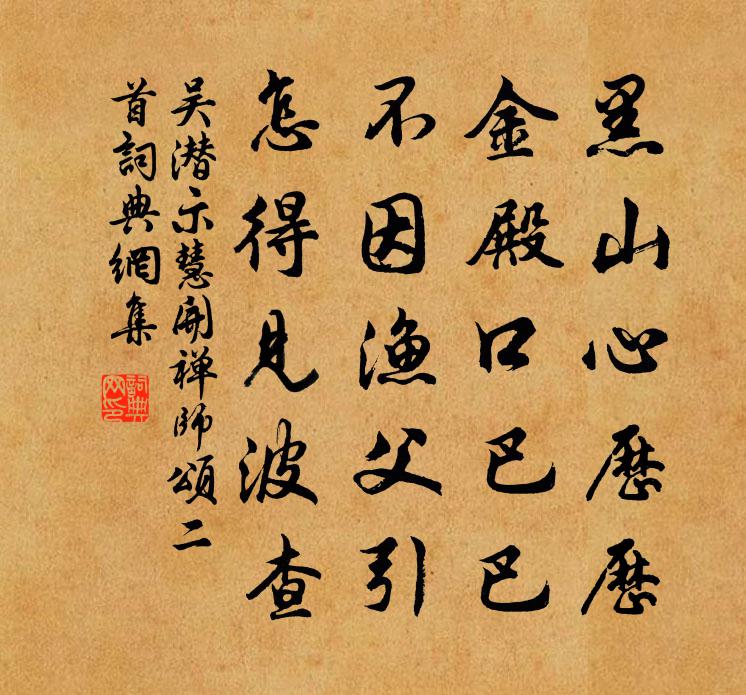 黑山心歷歷
金殿口巴巴
不因漁父引
怎得見波查
吴潛示慧開禅師頌二
首詞典網集
詞典網印